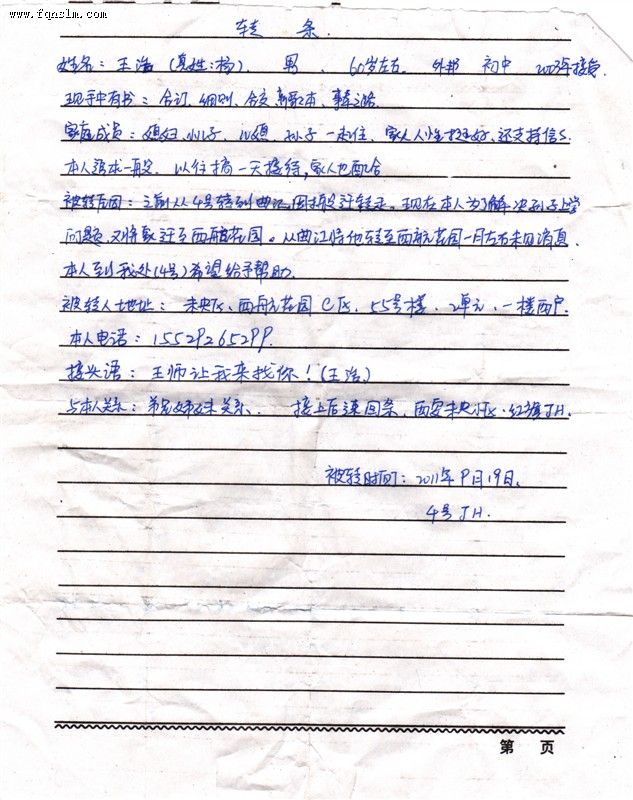 www.fqnslm.com
转 条.
姓名：王浩（真姓：杨）. 男 . 60岁左右. 外邦 初中 2003年接受.
现手中有书：合订、细则、合交、新歌2本、事奉之路.
家庭成员：媳妇、儿子、儿媳、孙子一起住、家人人性较好、还支持信S.
本人追求一般. 以往搞一天接待，家人也配合
被转原因：之前从4号转到曲江，因 搬迁转走. 现在本人为了解决孙子上学
问题，又将家迁至西航花园。从曲江将他转至西航花园一月左右未见消息.
本人到我处（4号）希望给予帮助.
被转人地址：未央区、西航花园C区、55号楼、2单元、一楼西户.
本人电话：15529265299.
接头语：王师让我来找你！（王浩）
与本人关系：弟兄姊妹关系. 接上后速回条、西安未央区·红旗JH.
被转时间：2011年9月19日.
4号JH.
第 页